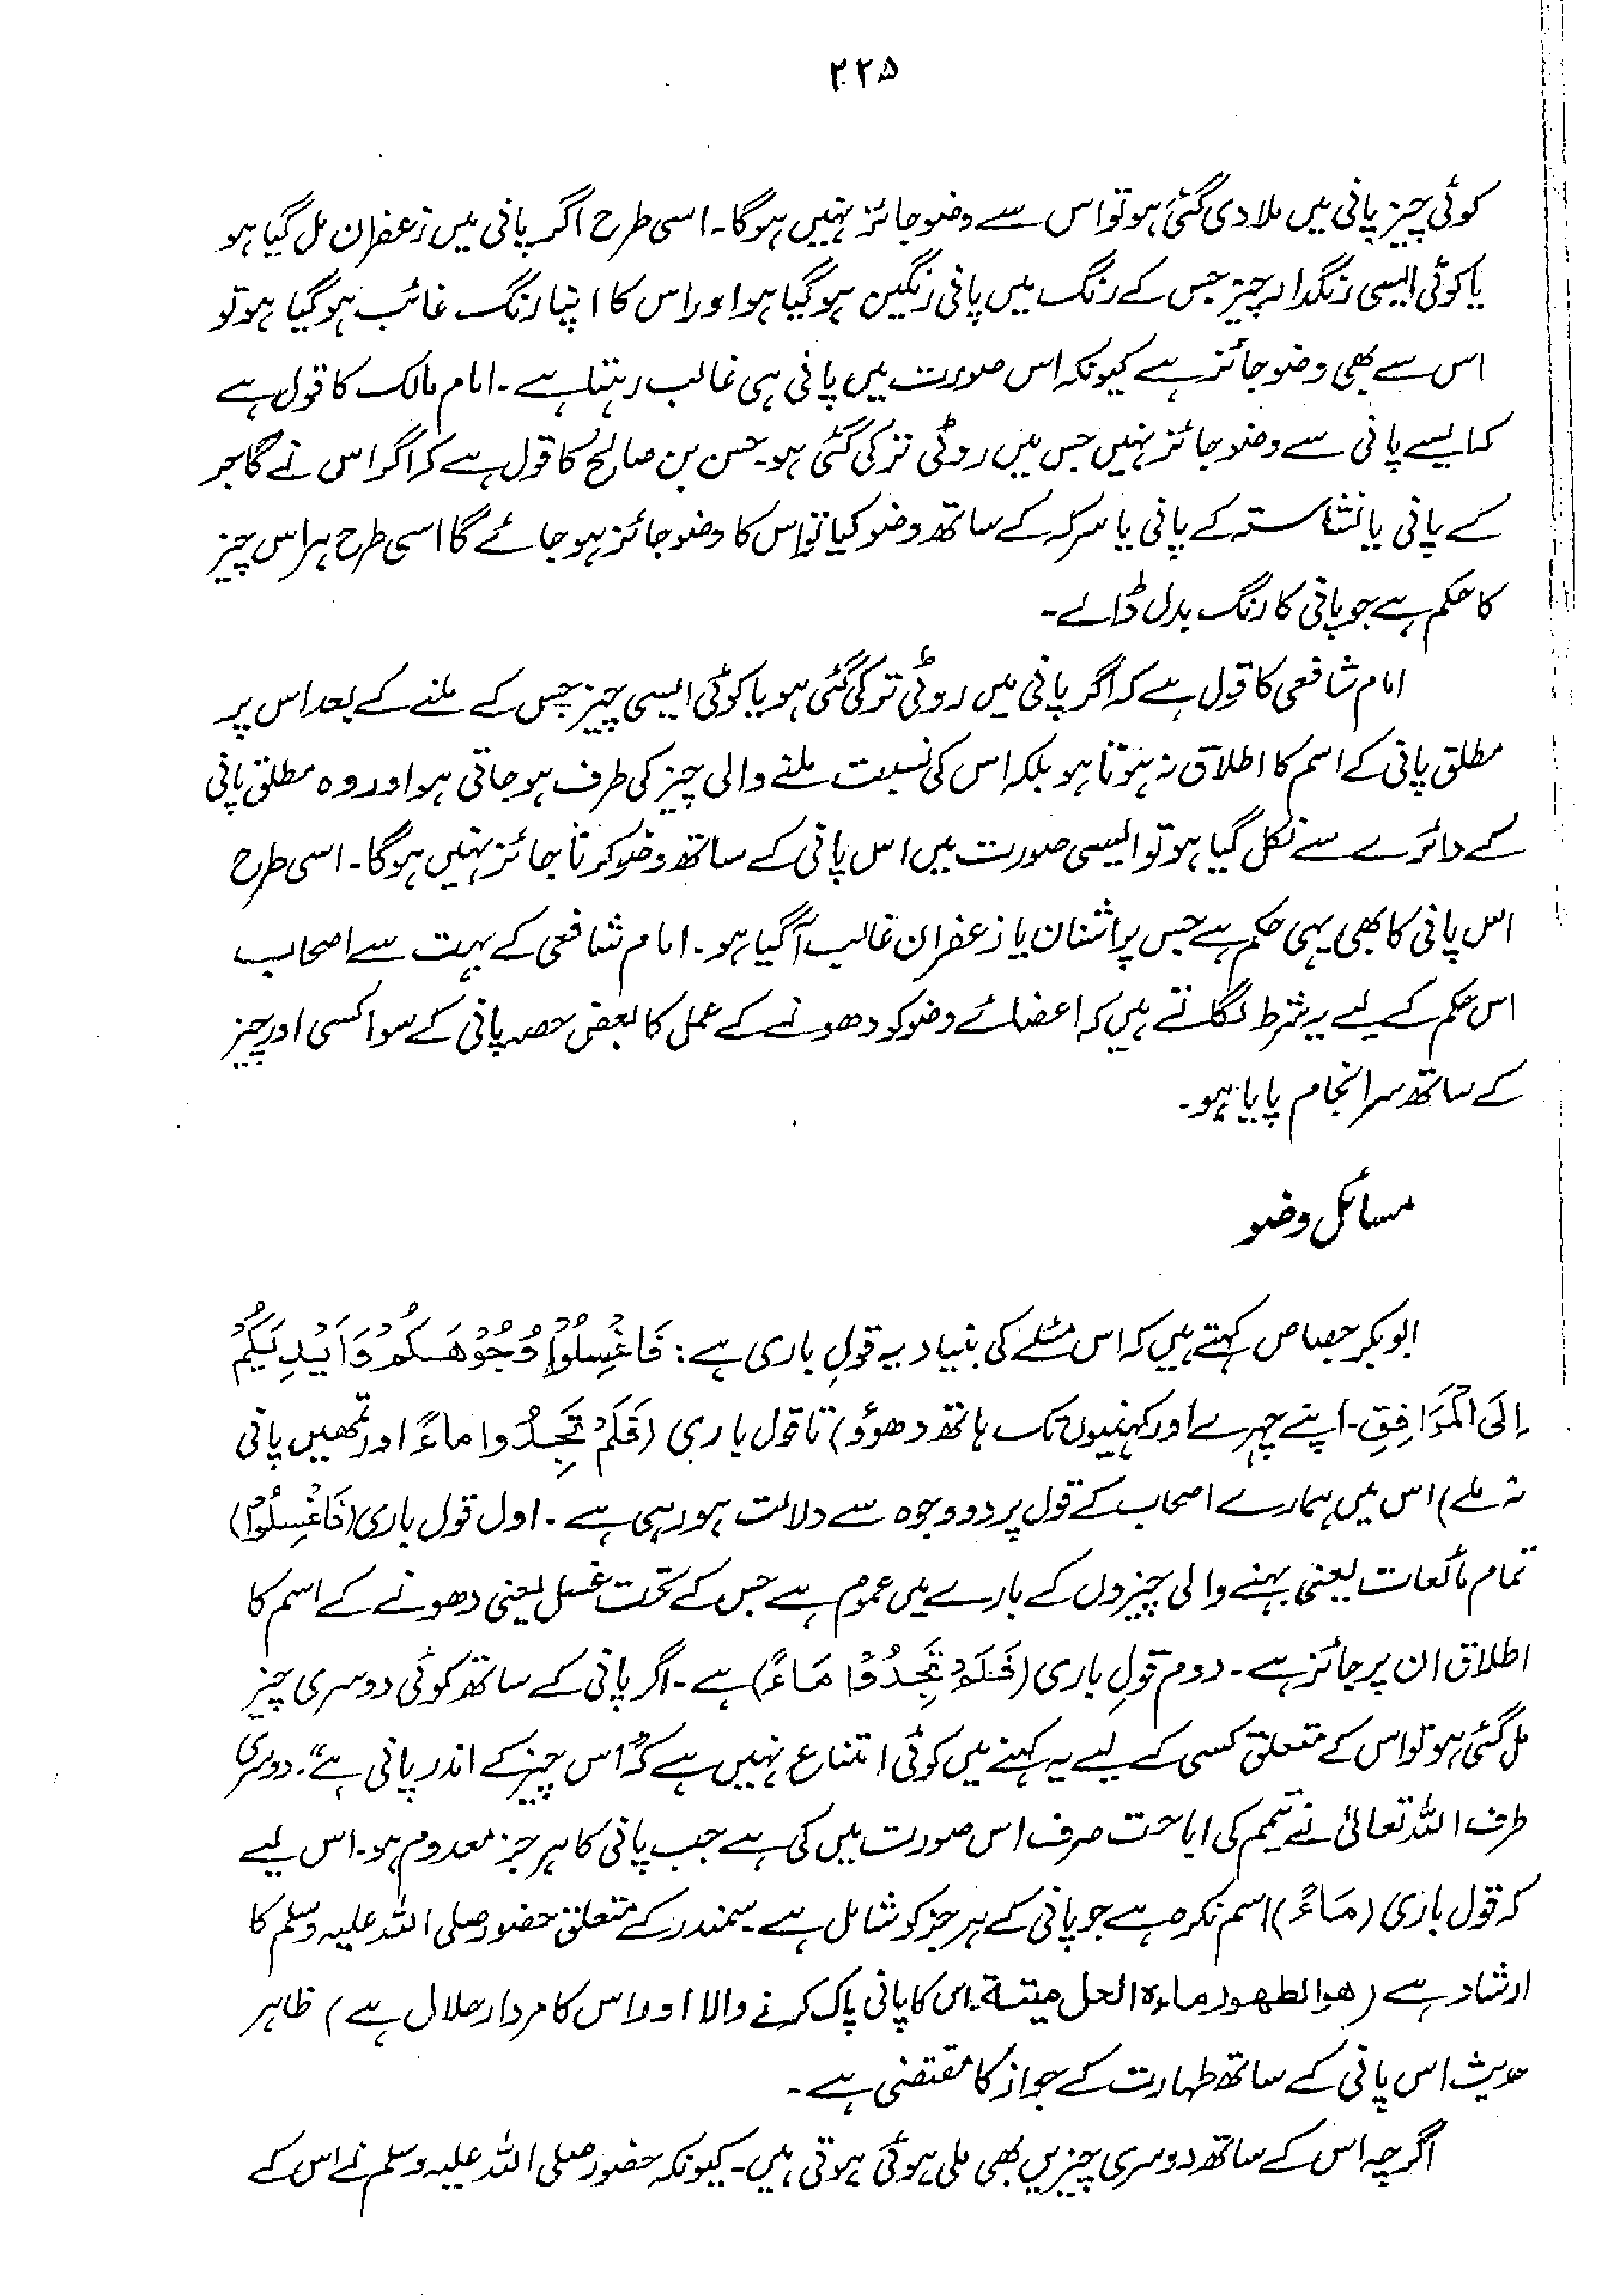 ۳۲۵
کوئی چیز پانی میں ملا دی گئی ہو تو اس سے وضو جائز نہیں ہوگا۔ اسی طرح اگر پانی میں زعفران مل گیا ہو
یا کوئی ایسی رنگدار چیز جس کے رنگ میں پانی رنگین ہو گیا ہو اور اس کا اپنا رنگ غائب ہو گیا ہو تو
اس سے بھی وضو جائز ہے کیونکہ اس صورت میں پانی ہی غالب رہتا ہے۔ امام مالک کا قول ہے
کہ ایسے پانی سے وضو جائز نہیں جس میں روٹی تر کی گئی ہو۔ حسن بن صالح کا قول ہے کہ اگر اس نے گاجر
کے پانی یا نشاستہ کے پانی یا سرکہ کے ساتھ وضو کیا تو اس کا وضو جائز ہو جائے گا اسی طرح ہر اس چیز
کا حکم ہے جو پانی کا رنگ بدل ڈالے۔
امام شافعی کا قول ہے کہ اگر پانی میں روٹی تر کی گئی ہو یا کوئی ایسی چیز جس کے ملنے کے بعد اس پر
مطلق پانی کے اسم کا اطلاق نہ ہوتا ہو بلکہ اس کی نسبت ملنے والی چیز کی طرف ہو جاتی ہو اور وہ مطلق پانی
کے دائرے سے نکل گیا ہو تو ایسی صورت میں اس پانی کے ساتھ وضو کرنا جائز نہیں ہوگا۔ اسی طرح
اس پانی کا بھی یہی حکم ہے جس پر اشنان یا زعفران غالب آ گیا ہو۔ امام شافعی کے بہت سے اصحاب
اس حکم کے لیے یہ شرط لگاتے ہیں کہ اعضائے وضو کو دھونے کے عمل کا بعض حصہ پانی کے سوا کسی اور چیز
کے ساتھ سرانجام پایا ہو۔
مسائل وضو
ابوبکر جصاص کہتے ہیں کہ اس مسئلے کی بنیاد یہ قولِ باری ہے: فَاغْسِلُوْا وُجُوْهَكُمْ وَاَيْدِيَكُمْ
اِلَى الْمَرَافِقِ۔ اپنے چہرے اور کہنیوں تک ہاتھ دھوؤ) تا قول باری (فَلَمْ تَجِدُوا ماءً اور تمھیں پانی
نہ ملے) اس میں ہمارے اصحاب کے قول پر دو وجوہ سے دلالت ہو رہی ہے۔ اول قول باری (فَاغْسِلُوْا)
تمام مائعات یعنی بہنے والی چیزوں کے بارے میں عموم ہے جس کے تحت غسل یعنی دھونے کے اسم کا
اطلاق ان پر جائز ہے۔ دوم قولِ باری (فَلَمْ تَجِدُوْا مَاءً) ہے۔ اگر پانی کے ساتھ کوئی دوسری چیز
مل گئی ہو تو اس کے متعلق کسی کے لیے یہ کہنے میں کوئی امتناع نہیں ہے کہ "اس چیز کے اندر پانی ہے"۔ دوسری
طرف اللہ تعالیٰ نے تیمم کی اباحت صرف اس صورت میں کی ہے جب پانی کا ہر جز معدوم ہو۔ اس لیے
کہ قول باری (مَاءً) اسم نکرہ ہے جو پانی کے ہر جز کو شامل ہے۔ سمندر کے متعلق حضور صلی اللہ علیہ وسلم کا
ارشاد ہے (هو الطهور ماءه الحل ميتة۔ اس کا پانی پاک کرنے والا اور اس کا مردار حلال ہے) ظاہر
حدیث اس پانی کے ساتھ طہارت کے جواز کا مقتضی ہے۔
اگرچہ اس کے ساتھ دوسری چیزیں بھی ملی ہوئی ہوتی ہیں۔ کیونکہ حضور صلی اللہ علیہ وسلم نے اس کے